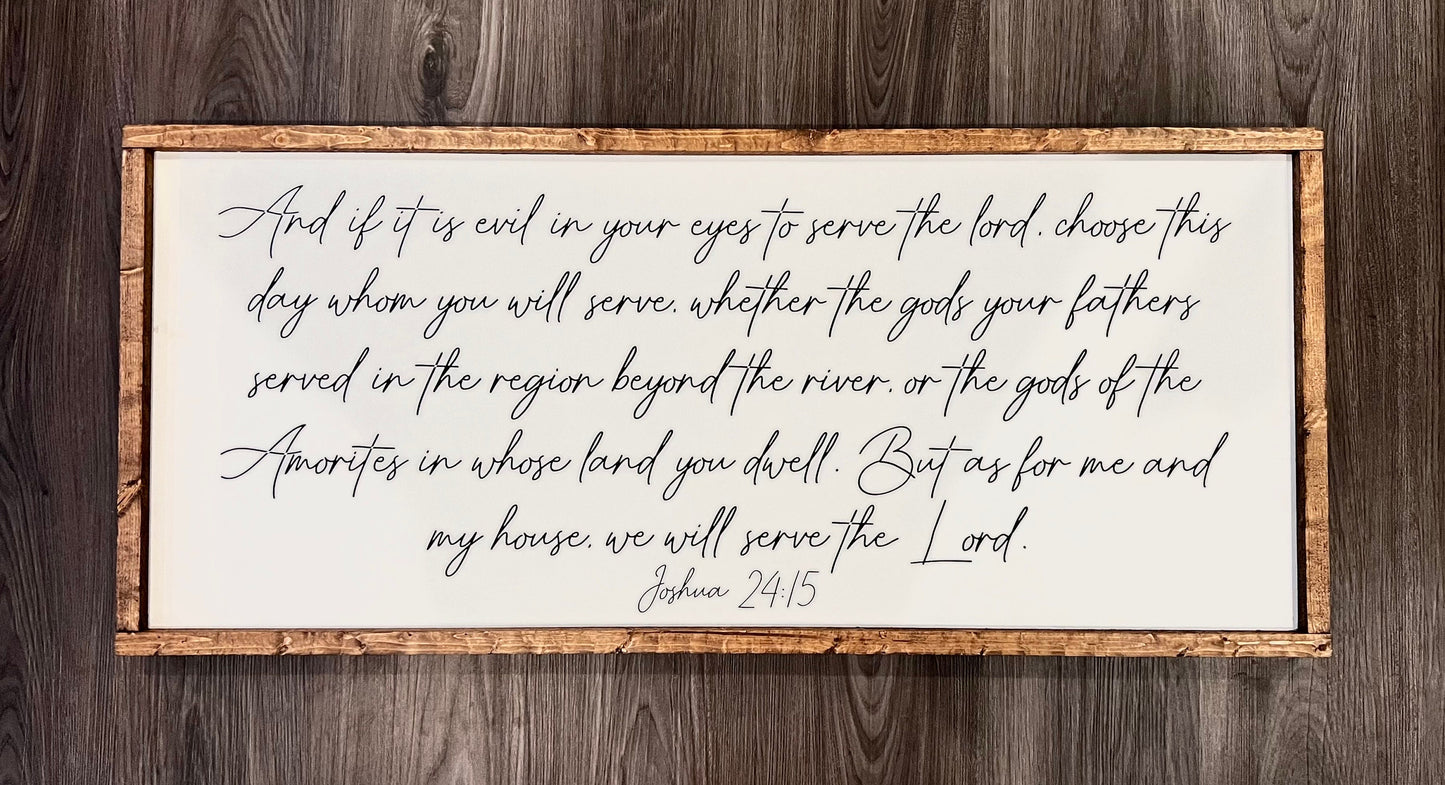 And if it is evil in your eyes to serve the lord, choose this
day whom you will serve, whether the gods your fathers
served in the region beyond the river, or the gods of the
Amorites in whose land you dwell. But as for me and
my house, we will serve the Lord.
Joshua 24:15